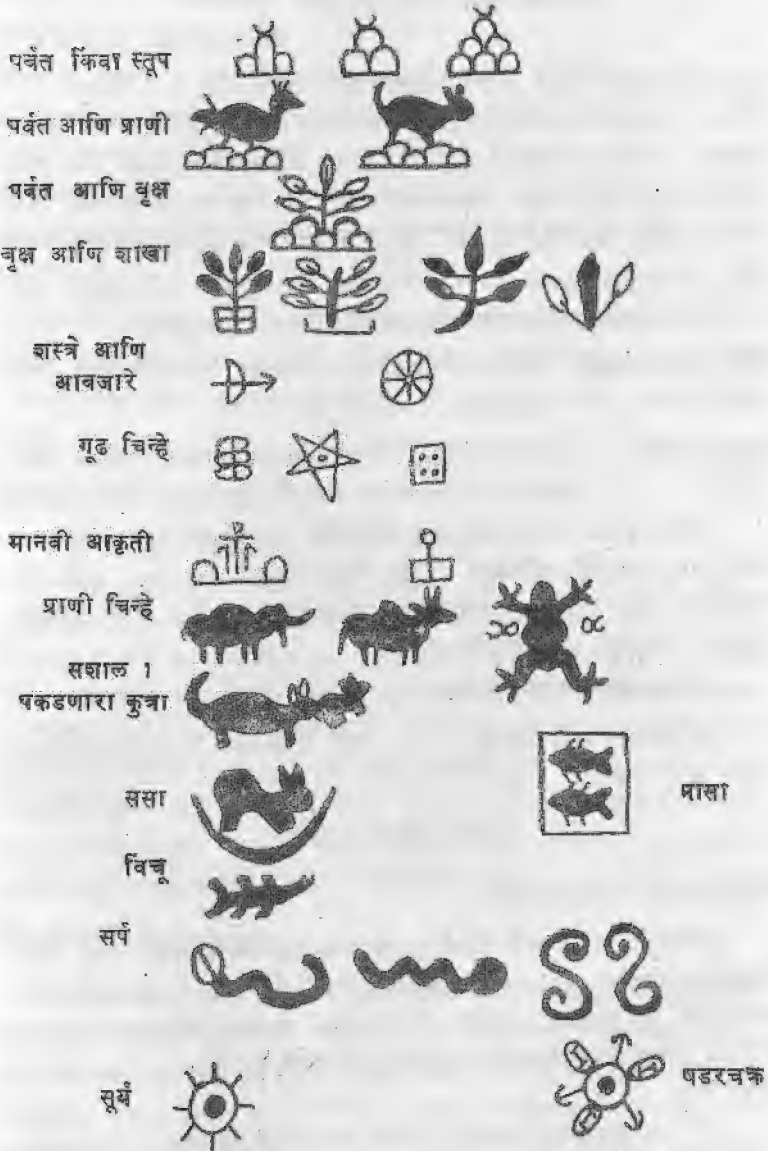 पर्वत किंवा स्तूप
पर्वत आणि प्राणी
पर्वत आणि वृक्ष
वृक्ष आणि शाखा
शस्त्रे आणि
आवजारे
गूढ चिन्हे
मानवी आकृती
प्राणी चिन्हे
सशाल ।
पकडणारा कुत्रा
ससा
मासा
विचू
सर्प
सूर्य
षडरचक्र